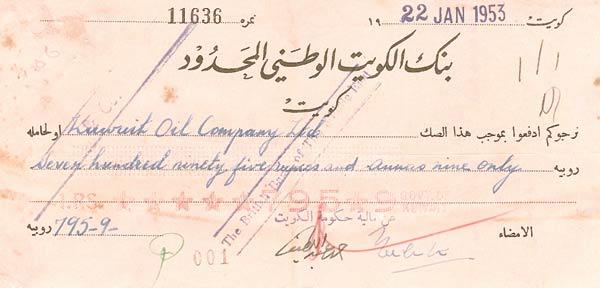 كويت ١٩ 22 JAN 1953 نمره 11636
بنك الكويت الوطني المحدود
كويت
نرجوكم ادفعوا بموجب هذا الصك Kuwait Oil Company Ltd اولحامله
روبيه Seven hundred ninety five rupies and annas nine only
I.RS. ★★★★★★795★9 GOVT OF KUWAIT
عن مالية حكومة الكويت
الامضاء 795-9- روبيه
001
The British Bank of The